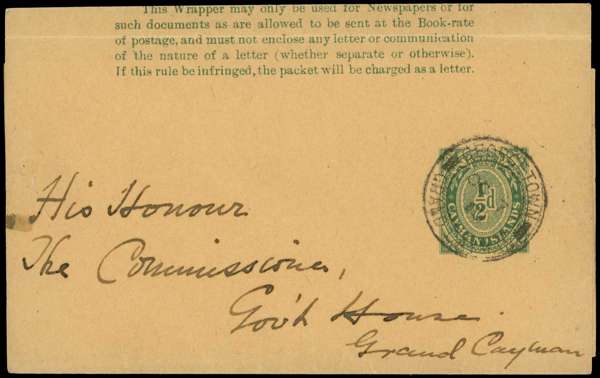 This Wrapper may only be used for Newspapers or for
such documents as are allowed to be sent at the Book-rate
of postage, and must not enclose any letter or communication
of the nature of a letter (whether separate or otherwise).
If this rule be infringed, the packet will be charged as a letter.
GEORGE TOWN
GRAND
1/2d.
CAYMAN ISLANDS
His Honour
The Commissioner,
Gov't House.
Grand Cayman